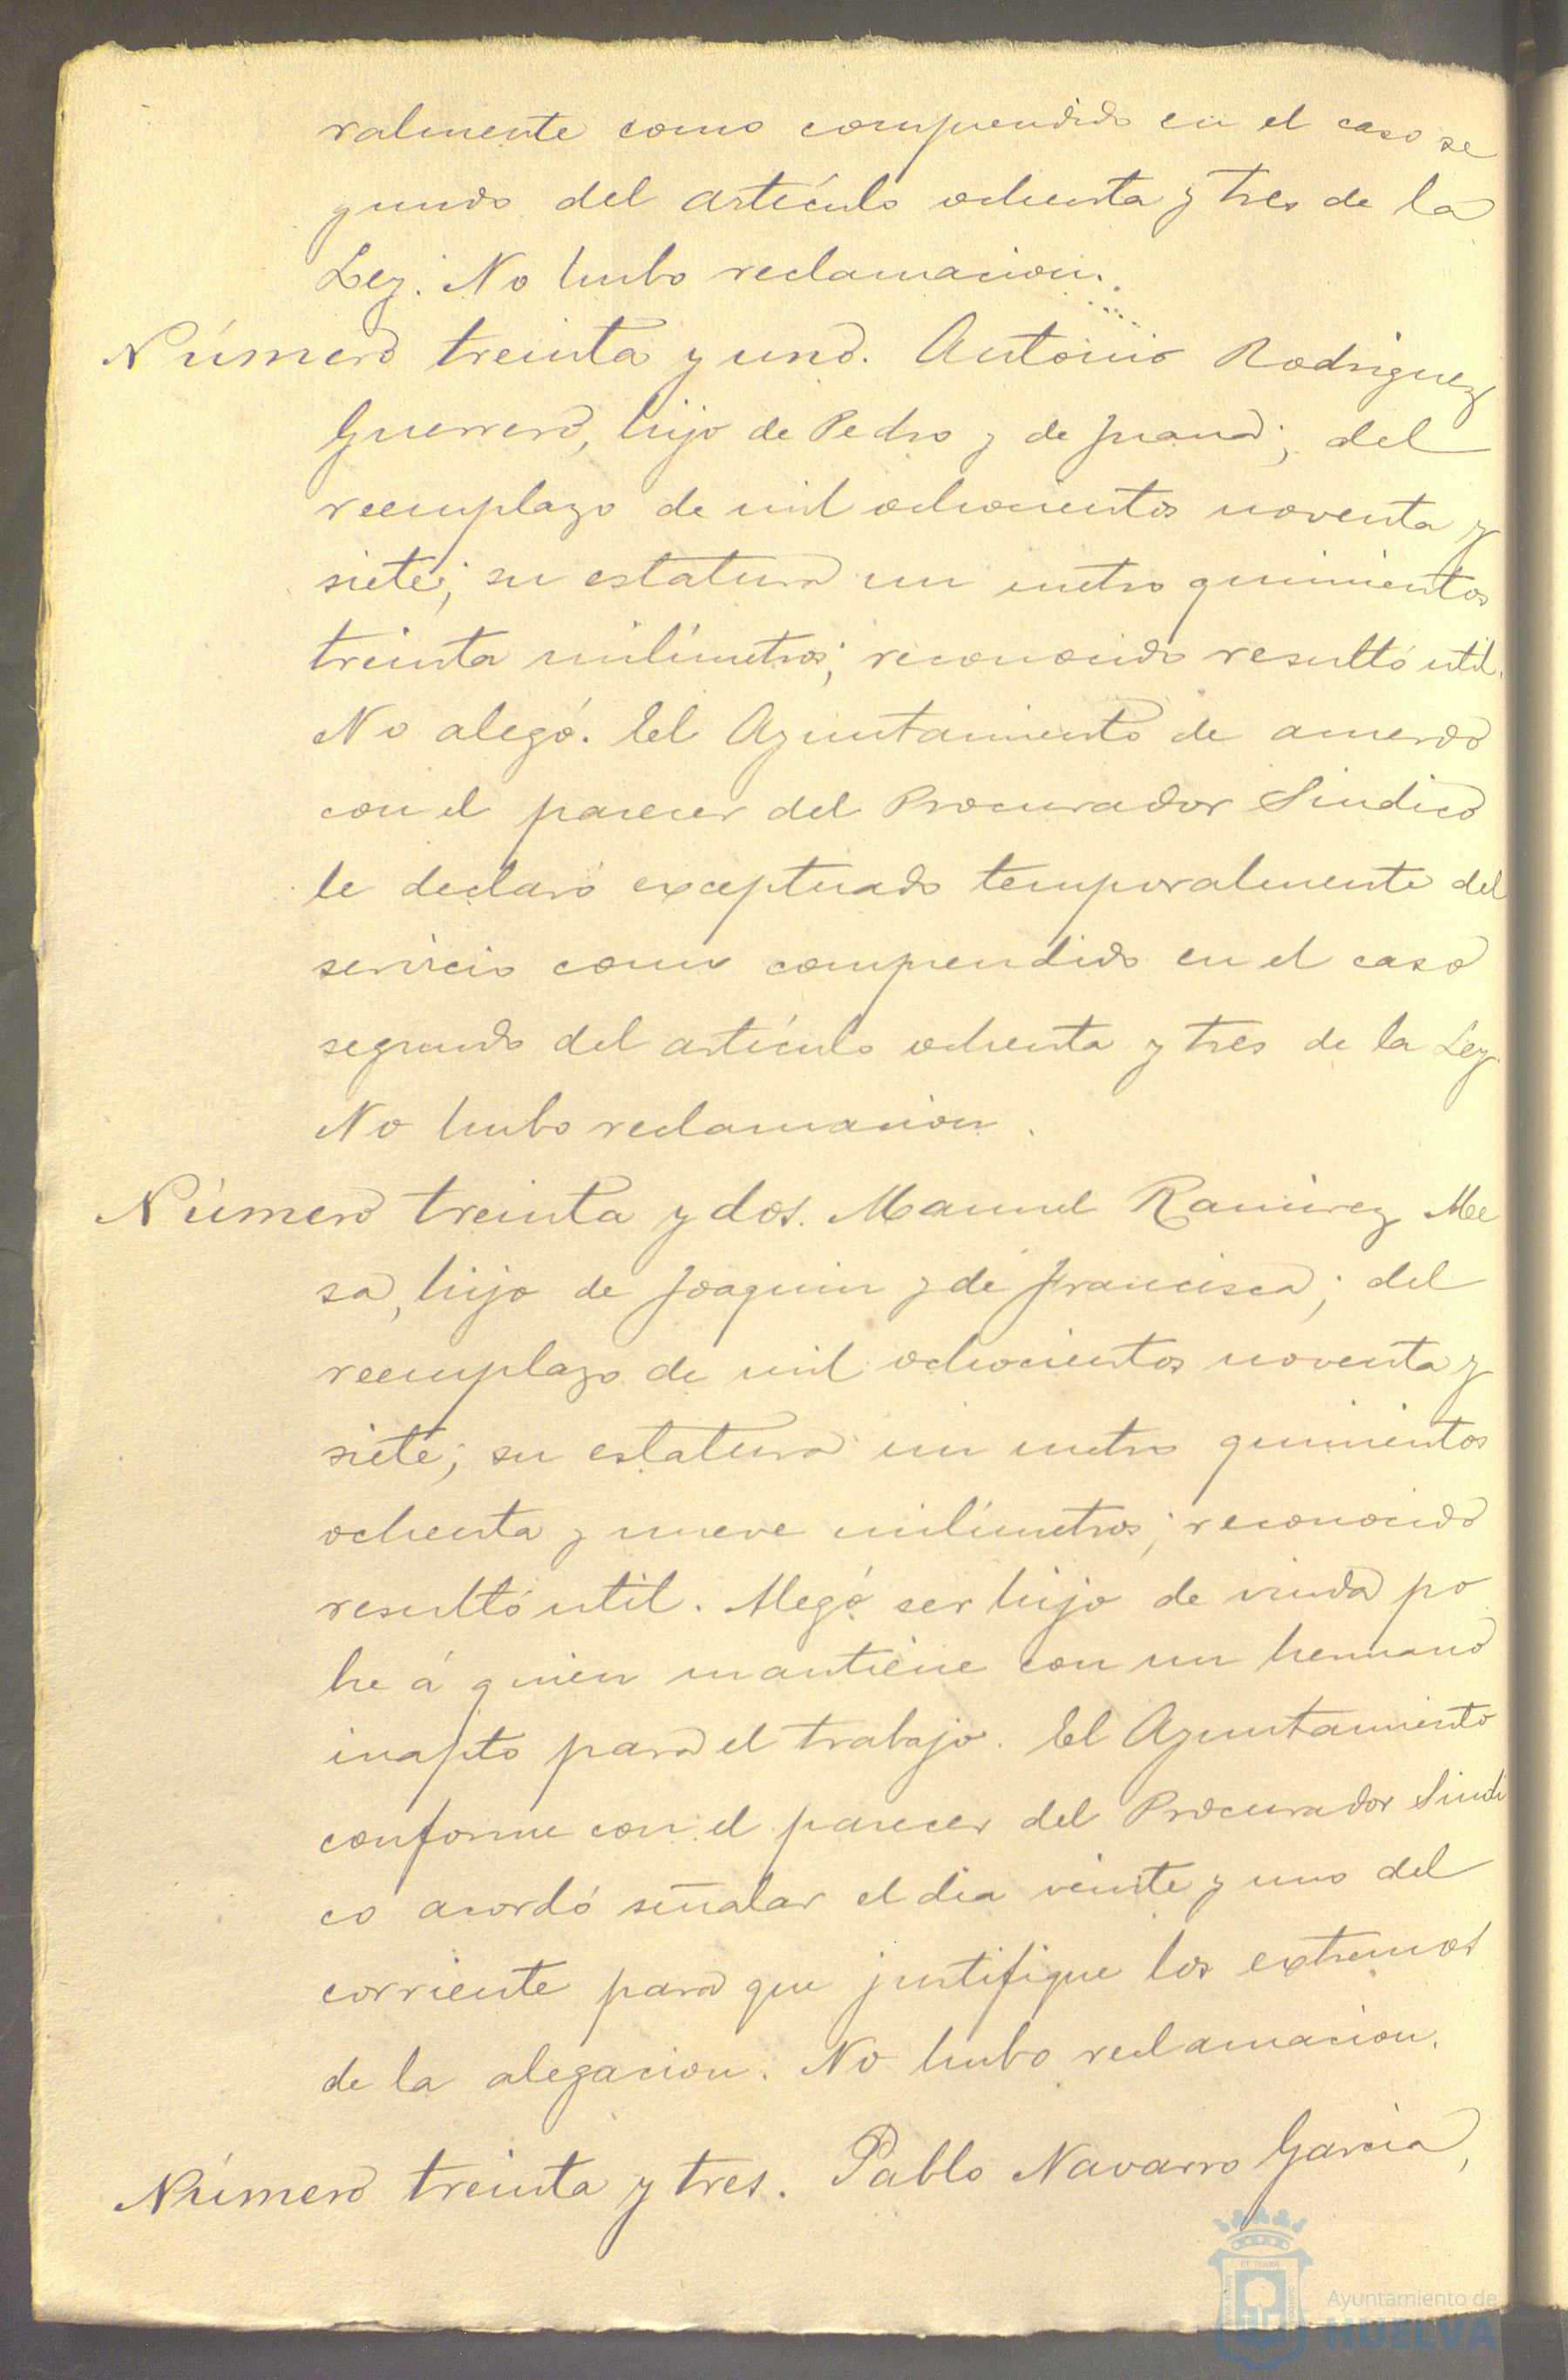 ralmente como comprendido en el caso se
gundo del artículo ochenta y tres de la
Ley. No hubo reclamacion.
Número treinta y uno. Antonio Rodriguez
Guerrero, hijo de Pedro y de Juana; del
reemplazo de mil ochocientos noventa y
siete; su estatura un metro quinientos
treinta milímetros; reconocido resultó util.
No alegó. El Ayuntamiento de acuerdo
con el parecer del Procurador Sindico
le declaró exceptuado temporalmente del
servicio como comprendido en el caso
segundo del artículo ochenta y tres de la Ley.
No hubo reclamacion.
Número treinta y dos. Manuel Ramirez Me
sa, hijo de Joaquin y de Francisca; del
reemplazo de mil ochocientos noventa y
siete; su estatura un metro quinientos
ochenta y nueve milímetros; reconocido
resultó util. Alegó ser hijo de viuda po
bre á quien mantiene con un hermano
inapto para el trabajo. El Ayuntamiento
conforme con el parecer del Procurador Sindi
co acordó señalar el dia veinte y uno del
corriente para que justifique los extremos
de la alegacion. No hubo reclamacion.
Número treinta y tres. Pablo Navarro Garcia,
Ayuntamiento de
HUELVA